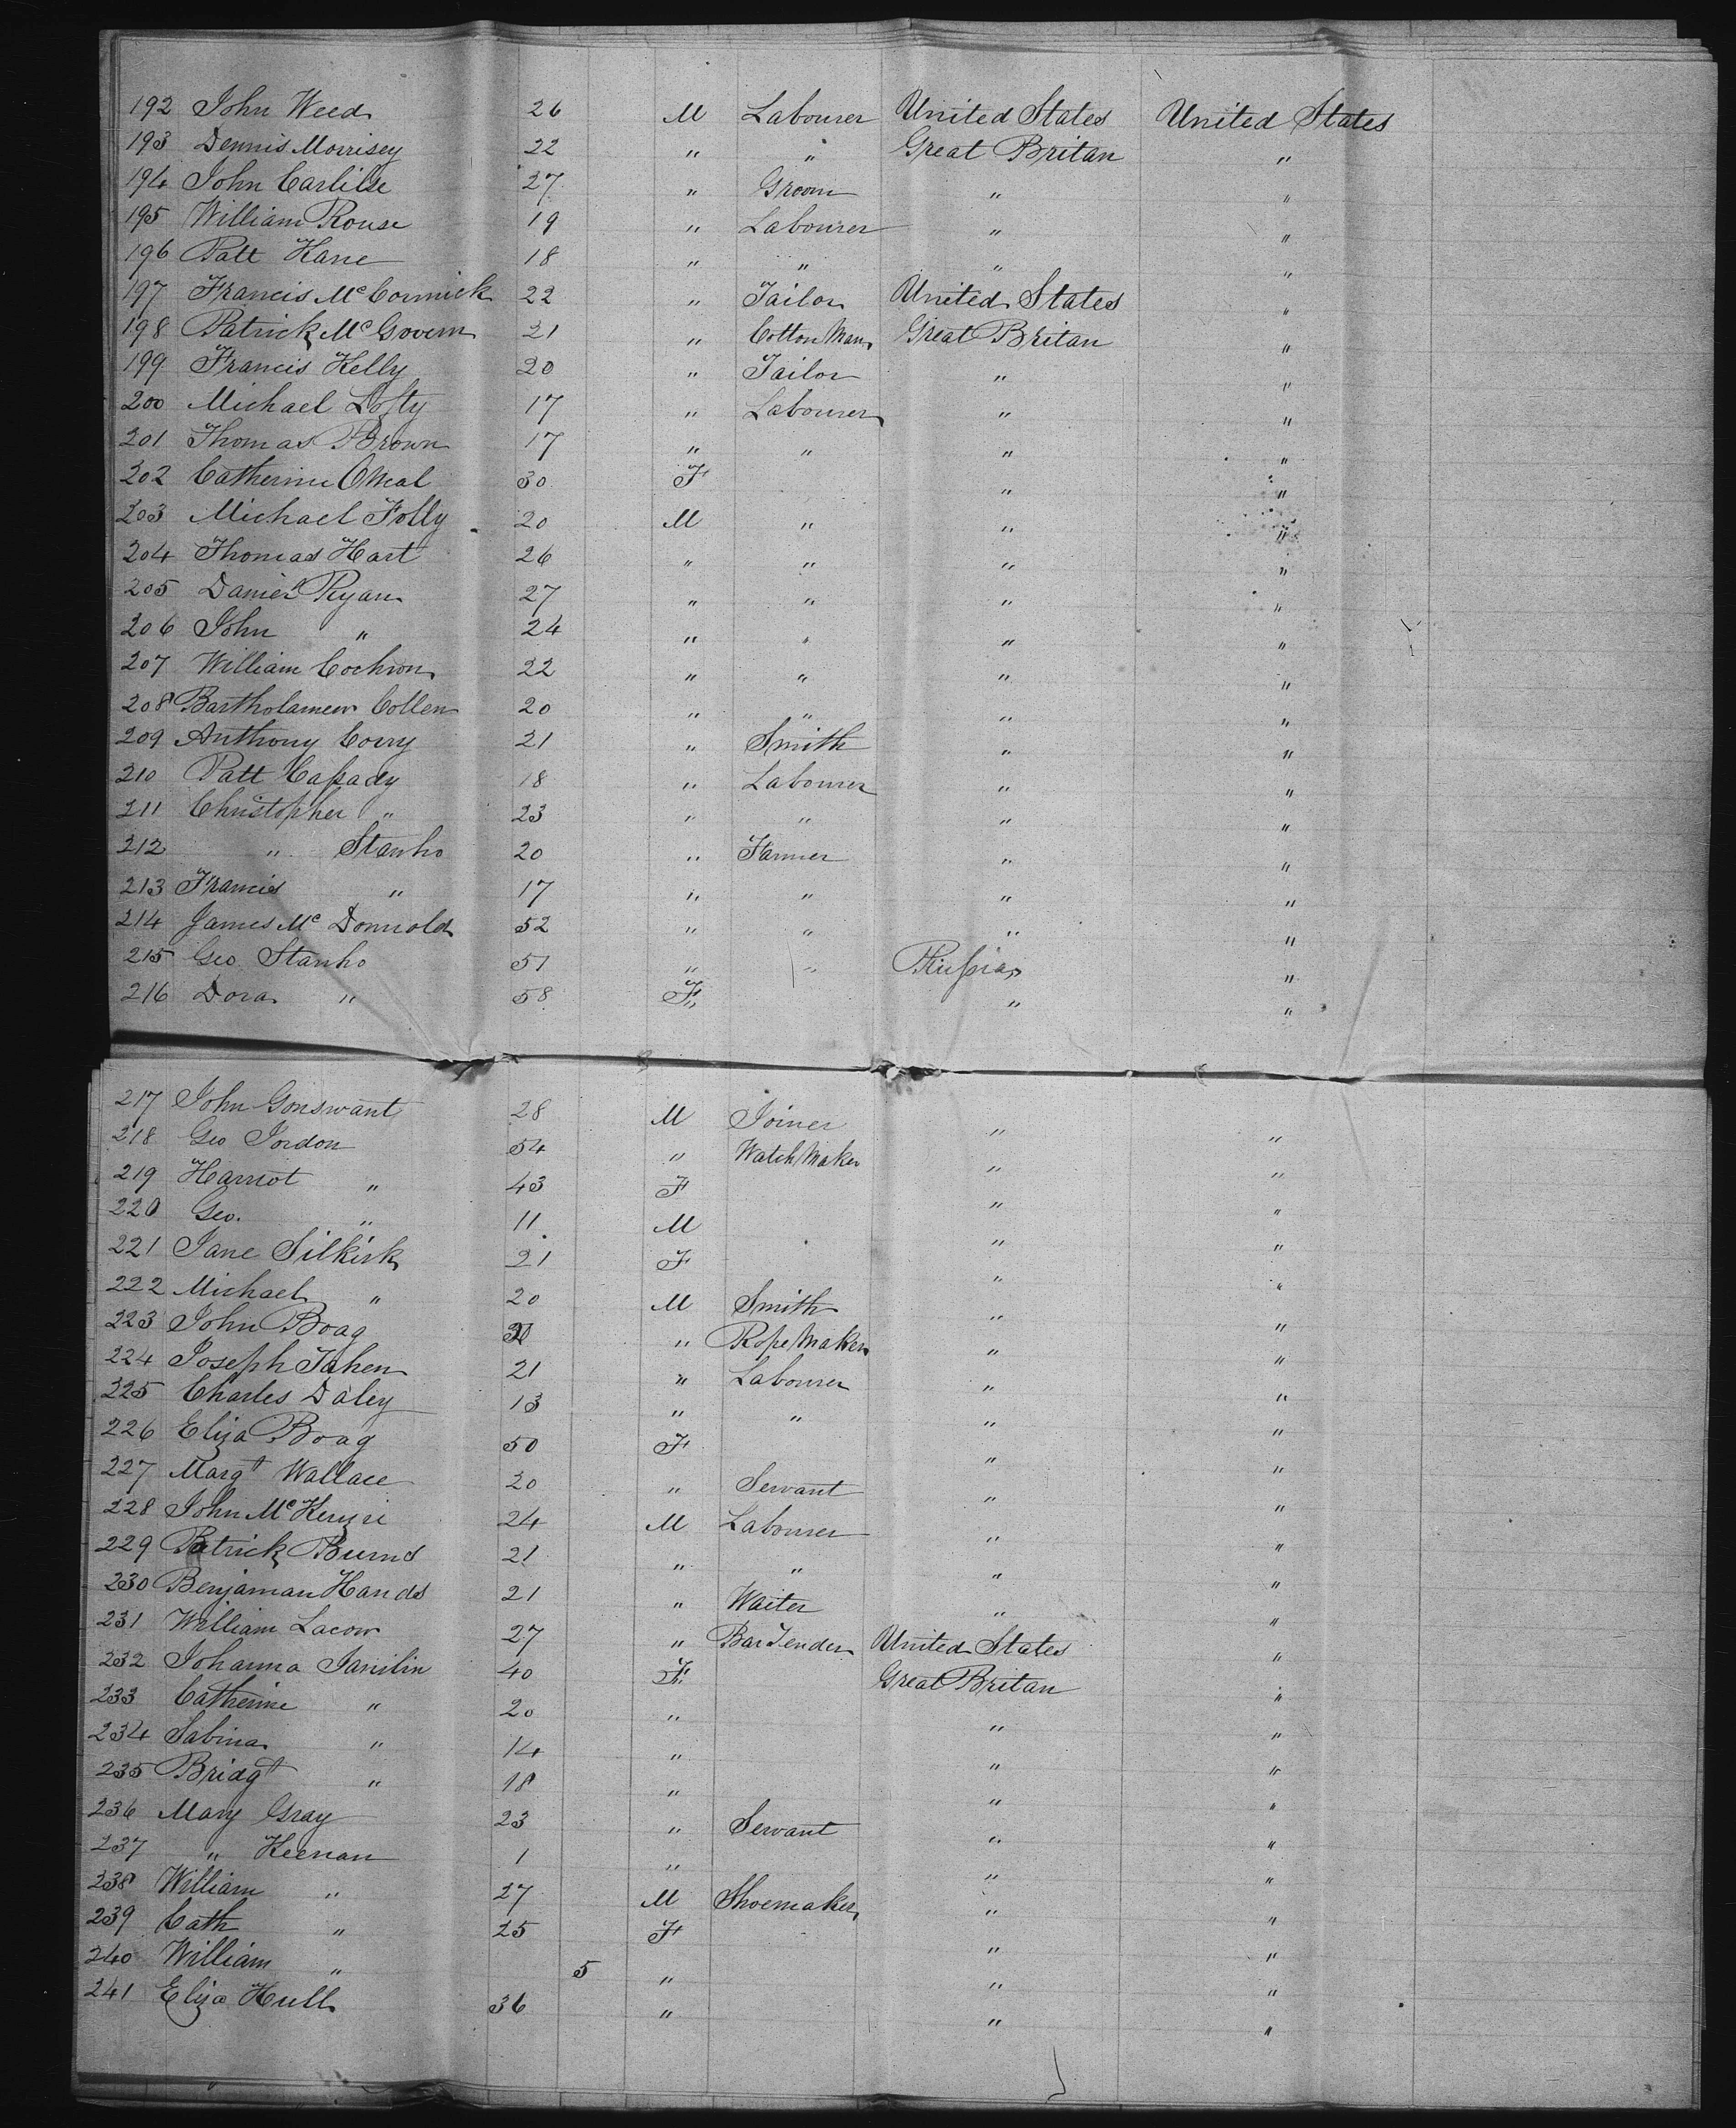 192 John Weed 26 M Labourer United States United States
193 Dennis Morrisey 22 " " Great Britan "
194 John Carlisle 27 " Groom " "
195 William Rouse 19 " Labourer " "
196 Patt Kane 18 " " " "
197 Francis McCormick 22 " Tailor United States "
198 Patrick McGovern 21 " Cotton Man Great Britan "
199 Francis Kelly 20 " Tailor " "
200 Michael Lofty 17 " Labourer " "
201 Thomas Brown 17 " " " "
202 Catherine ONeal 30 F " "
203 Michael Folly 20 M " " "
204 Thomas Hart 26 " " " "
205 Daniel Ryan 27 " " " "
206 John " 24 " " " "
207 William Cochron 22 " " " "
208 Bartholamew Collen 20 " " " "
209 Anthony Corry 21 " Smith " "
210 Patt Caſsady 18 " Labourer " "
211 Christopher " 23 " " " "
212 " Stanho 20 " Farmer " "
213 Francis " 17 " " " "
214 James Mc Donnold 52 " " " "
215 Geo Stanho 51 " " "
216 Dora " 58 F " "
217 John Gonswant 28 M Joiner " "
218 Geo Jordon 54 " Watch Maker " "
219 Harriot " 43 F " "
220 Geo. " 11 M " "
221 Jane Silkirk 21 F " "
222 Michael " 20 M Smith " "
223 John Boag " Rope Maker " "
224 Joseph Tahen 21 " Labourer " "
225 Charles Daley 13 " " " "
226 Eliza Boag 50 F " "
227 Margt Wallace 20 " Servant " "
228 John McKenzie 24 M Labourer " "
229 Patrick Burns 21 " " " "
230 Benjaman Hands 21 " Waiter " "
231 William Lacow 27 " Bar Tender United States "
232 Johanna 40 F Great Britan "
233 Catherine " 20 " " "
234 Sabina " 14 " " "
235 Bridgt " 18 " " "
236 Mary Gray 23 " Servant " "
237 " Keenan 1 " " "
238 William " 27 M Shoemaker " "
239 Cath " 25 F " "
240 William " 5 " " "
241 Eliza Hull 36 " " "